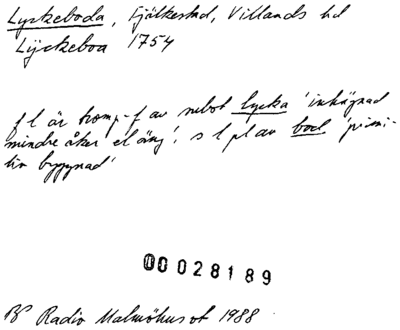 Lyckeboda, Fjälkestad, Villands hd
Lÿckeboa 1754
f l är komp-f av subst lycka 'inhägnad
mindre åker el äng'; s l pl av bod 'primi-
tiv byggnad'
00028189
Radio Malmöhus ot 1988